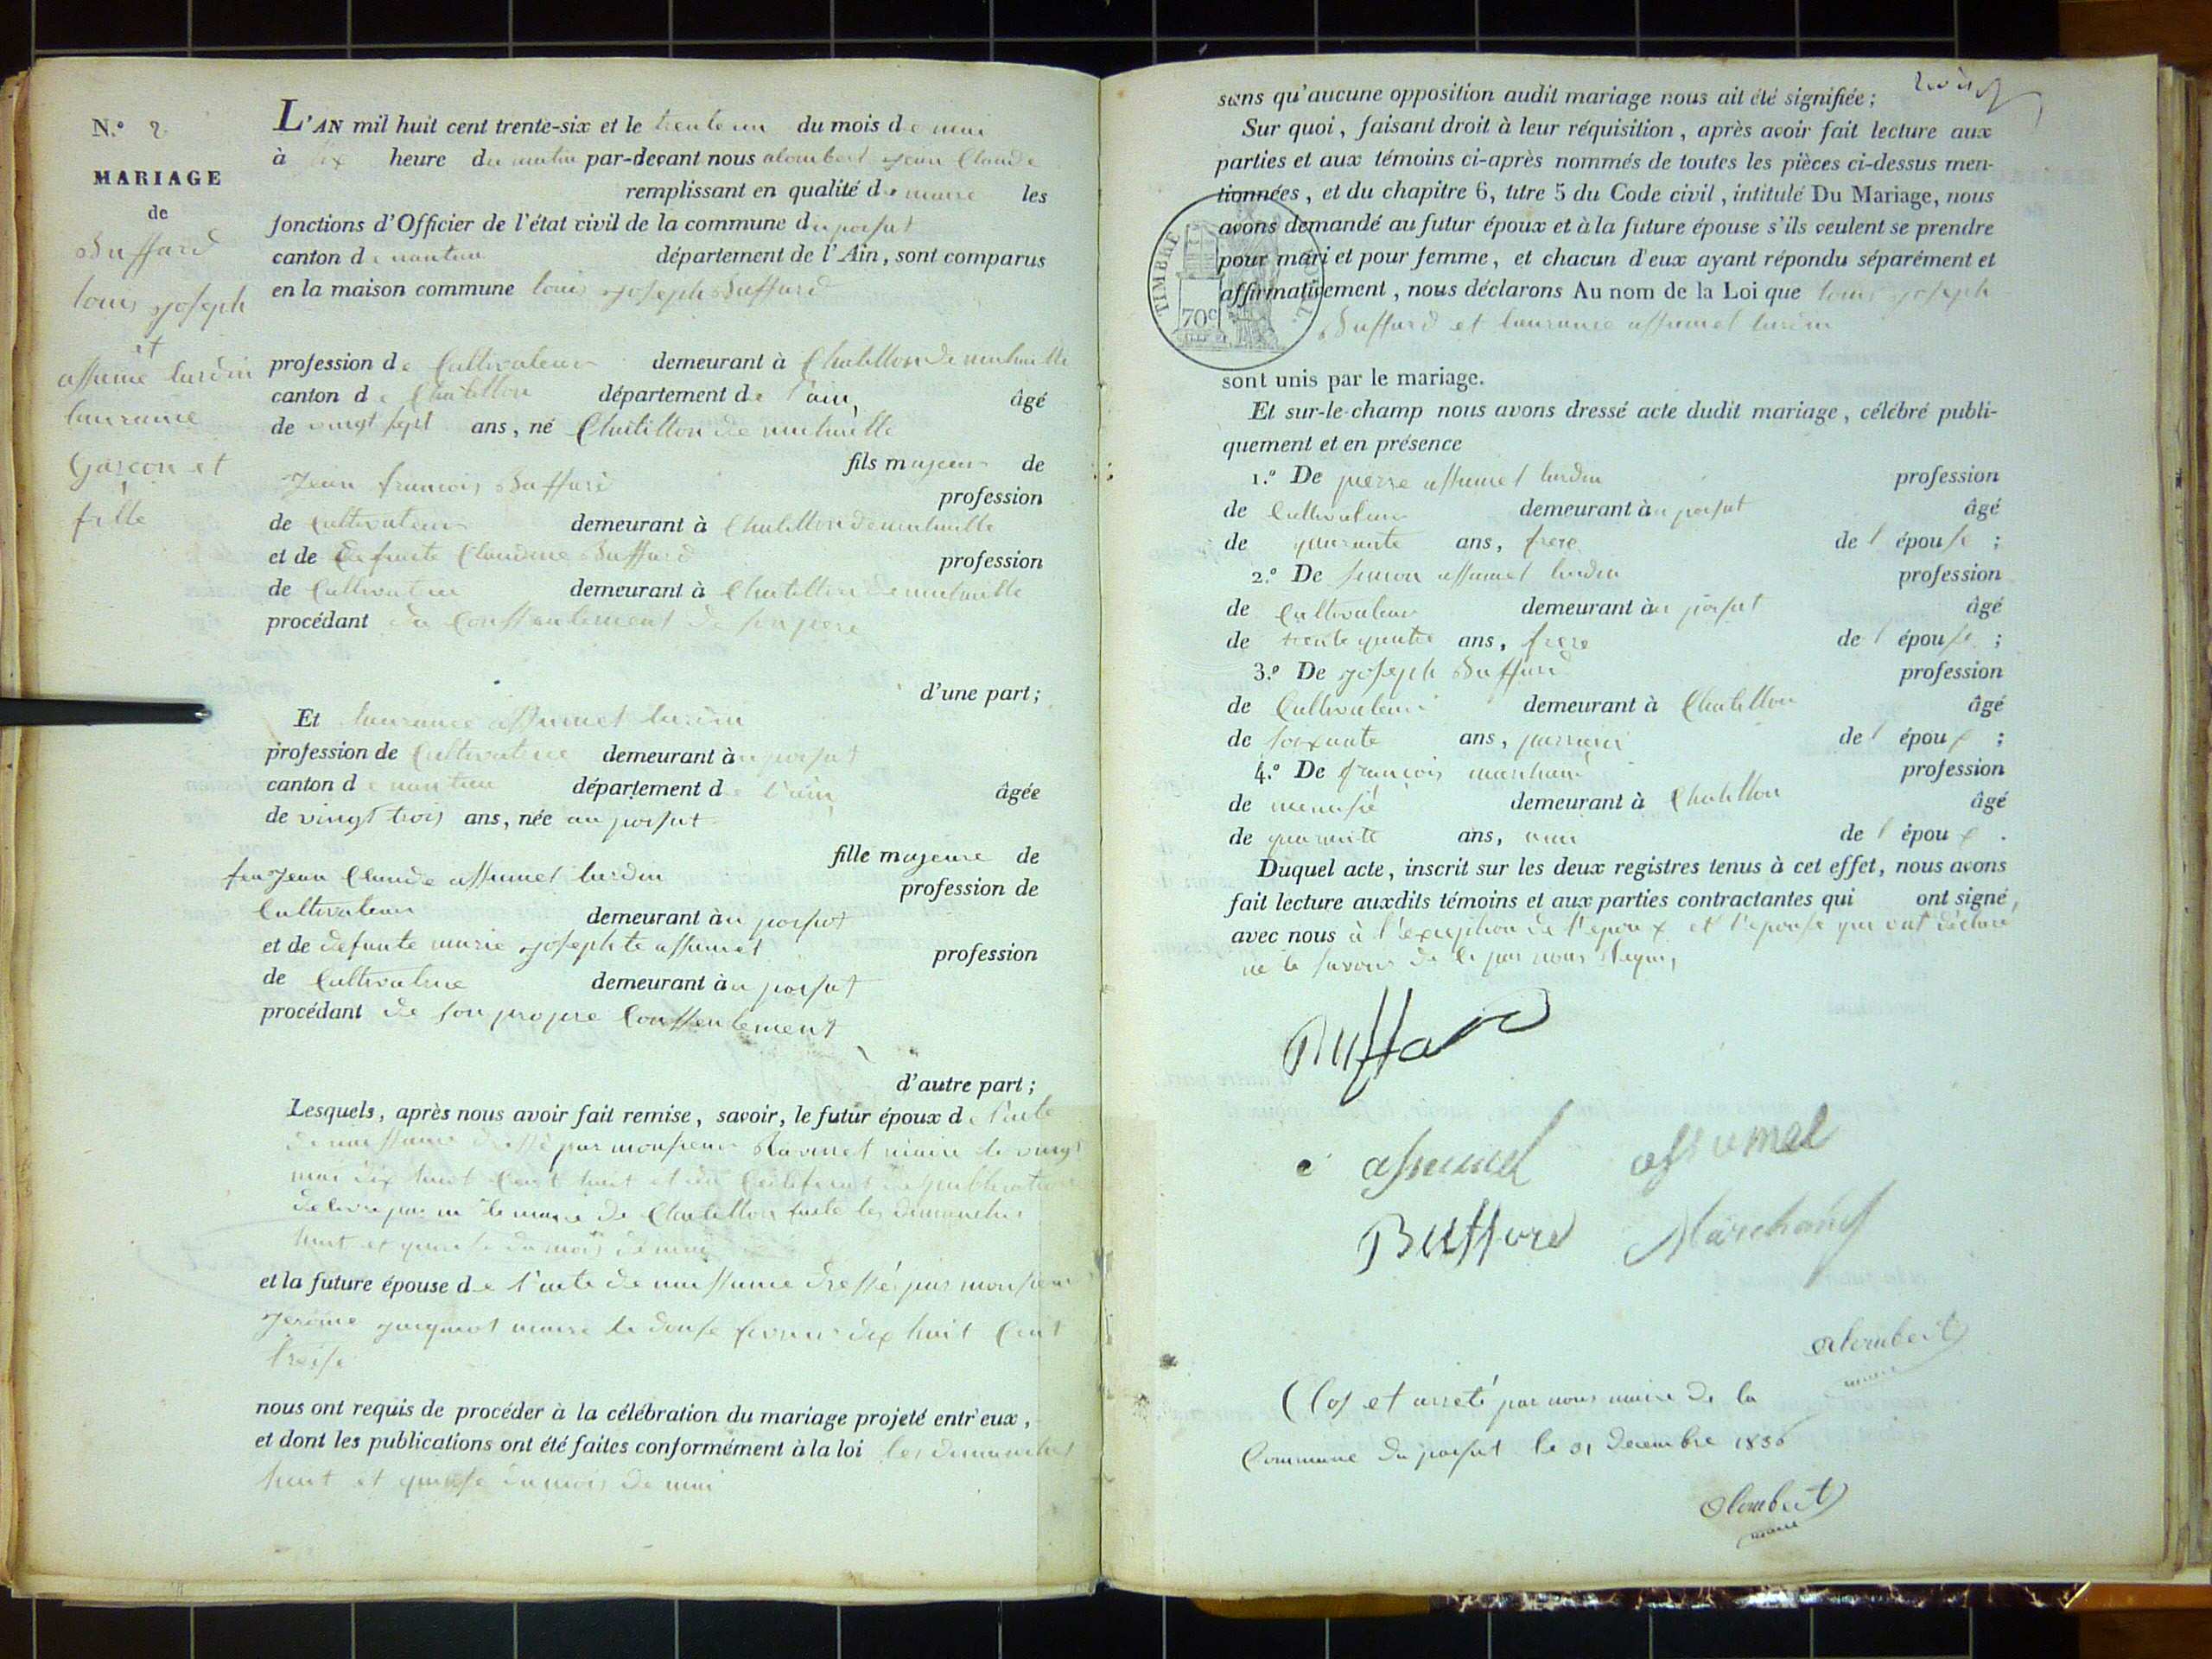 N.º 2
MARIAGE
de
Buffard
louis joseph
et
assumet lardin
laurance
Garçon et
fille
L'AN mil huit cent trente-six et le trente un du mois de mai
à dix heure du matin par-devant nous alombert jean Claude
remplissant en qualité de maire les
fonctions d'Officier de l'état civil de la commune du poisat
canton de nantua département de l'Ain, sont comparus
en la maison commune louis joseph Buffard
profession de Cultivateur demeurant à Chatillon de michaille
canton de Chatillon département de l'ain, âgé
de vingt sept ans, né Chatillon de michaille
fils majeur de
Jean francois Buffard
profession
de Cultivateur demeurant à Chatillon de michaille
et de defunte Claudine Buffard profession
de Cultivatrice demeurant à Chatillon de michaille
procédant du Conssentement de son pere
d'une part;
Et laurance assumet lardin
profession de Cultivatrice demeurant au poisat
canton de nantua département de l'ain, âgée
de vingt trois ans, née au poisat
fille majeure de
feu Jean Claude assumet lardin profession de
Cultivateur demeurant au poisat
et de defunte marie josephte assumet profession
de Cultivatrice demeurant au poisat
procédant de son propre Conssentement
d'autre part;
Lesquels, après nous avoir fait remise, savoir, le futur époux de l'acte
de naissance dressé par monsieur Ravinet maire le vingt
mai dix huit Cent huit et du Certificat de publication
delivre par m le maire de Chatillon faite les dimanches
huit et quinse du mois de mai
et la future épouse de l'acte de naissance dressé par monsieur
Jerome jacquiot maire le douse fevrier dix huit Cent
treise
nous ont requis de procéder à la célébration du mariage projeté entr'eux,
et dont les publications ont été faites conformément à la loi les dimanches
huit et quinse du mois de mai
sans qu'aucune opposition audit mariage nous ait été signifiée;
Sur quoi, faisant droit à leur réquisition, après avoir fait lecture aux
parties et aux témoins ci-après nommés de toutes les pièces ci-dessus men-
tionnées, et du chapitre 6, titre 5 du Code civil, intitulé Du Mariage, nous
avons demandé au futur époux et à la future épouse s'ils veulent se prendre
pour mari et pour femme, et chacun d'eux ayant répondu séparément et
affirmativement, nous déclarons Au nom de la Loi que louis joseph
Buffard et laurance assumet lardin
TIMBRE ROYAL
70c
sont unis par le mariage.
Et sur-le-champ nous avons dressé acte dudit mariage, célébré publi-
quement et en présence
1.º De pierre assumet lardin profession
de Cultivateur demeurant au poisat âgé
de quarante ans, frere de l'épouse;
2.º De simon assumet lardin profession
de Cultivateur demeurant au poisat âgé
de trente quatre ans, frere de l'épouse;
3.º De joseph Buffard profession
de Cultivateur demeurant à Chatillon âgé
de soixante ans, parrain de l'époux;
4.º De françois marchand profession
de menusié demeurant à Chatillon âgé
de quarante ans, ami de l'époux.
Duquel acte, inscrit sur les deux registres tenus à cet effet, nous avons
fait lecture auxdits témoins et aux parties contractantes qui ont signé,
avec nous à l'exception de l'epoux et l'epouse qui ont déclaré
ne le savoir de ce par nous Requis
Buffard
assumel assumel
Buffard Marchand
alombert
maire
Clos et arreté par nous maire de la
Commune du poisat le 31 decembre 1836
alombert
maire